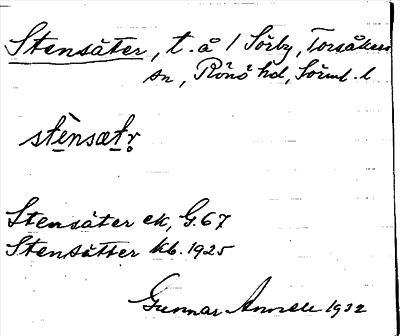 Stensäter, t. å 1 Sörby, Torsåkers
sn, Rönö hd, Södml. l.
stènsætr
Stensäter ek, G. 67
Stensätter kb. 1925
Gunnar 1932